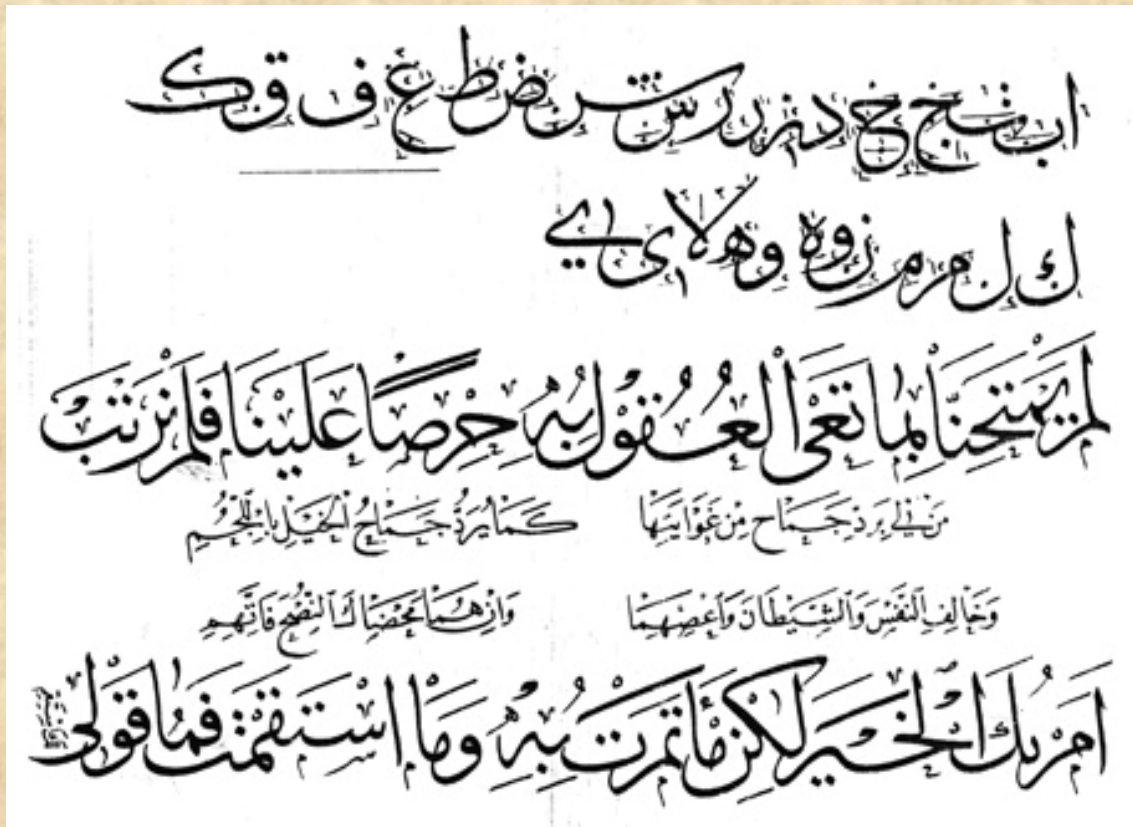 ا ب ف خ خ د نر ر ر س س ض ط ع ف ق ك
ك ل ل م م ن و ه و ه لا ى ي
لَمْ يَمْتَحِنَّا بِمَا تَعْيَ الْعُقُولُ بِهِ حِرْصًا عَلَيْنَا فَلَمْ نَرْتَبْ
مَنْ لِي بِرَدِّ جِمَاحٍ مِنْ غَوَايَتِهَا كَمَا يُرَدُّ جِمَاحُ الْخَيْلِ بِاللُّجُمِ
وَخَالِفِ النَّفْسَ وَالشَّيْطَانَ وَاعْصِهِمَا وَاِنْ هُمَا مَحَضَاكَ النُّصْحَ فَاتَّهِمِ
اَمَرْتُكَ الْخَيْرَ لَكِنْ مَا ائْتَمَرْتُ بِهِ وَمَا اسْتَقَمْتُ فَمَا قَوْلِي